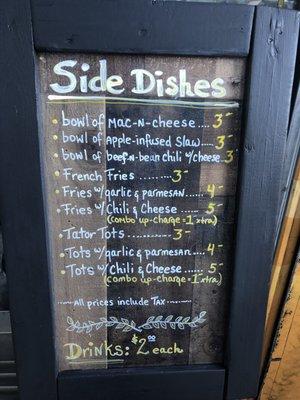 Side Dishes
• bowl of Mac-n-cheese .... 3-
• bowl of Apple-infused Slaw .... 3-
• bowl of beef-n-bean chili w/cheese 3-
• French Fries ......... 3-
• Fries w/garlic & parmesan ...... 4-
• Fries w/Chili & Cheese ...... 5-
(combo up-charge = 1 xtra)
• Tator Tots .............. 3-
• Tots w/garlic & parmesan .... 4-
• Tots w/Chili & Cheese ...... 5-
(combo up-charge = 1 xtra)
...... All prices include Tax ..........
Drinks: $2.00 each